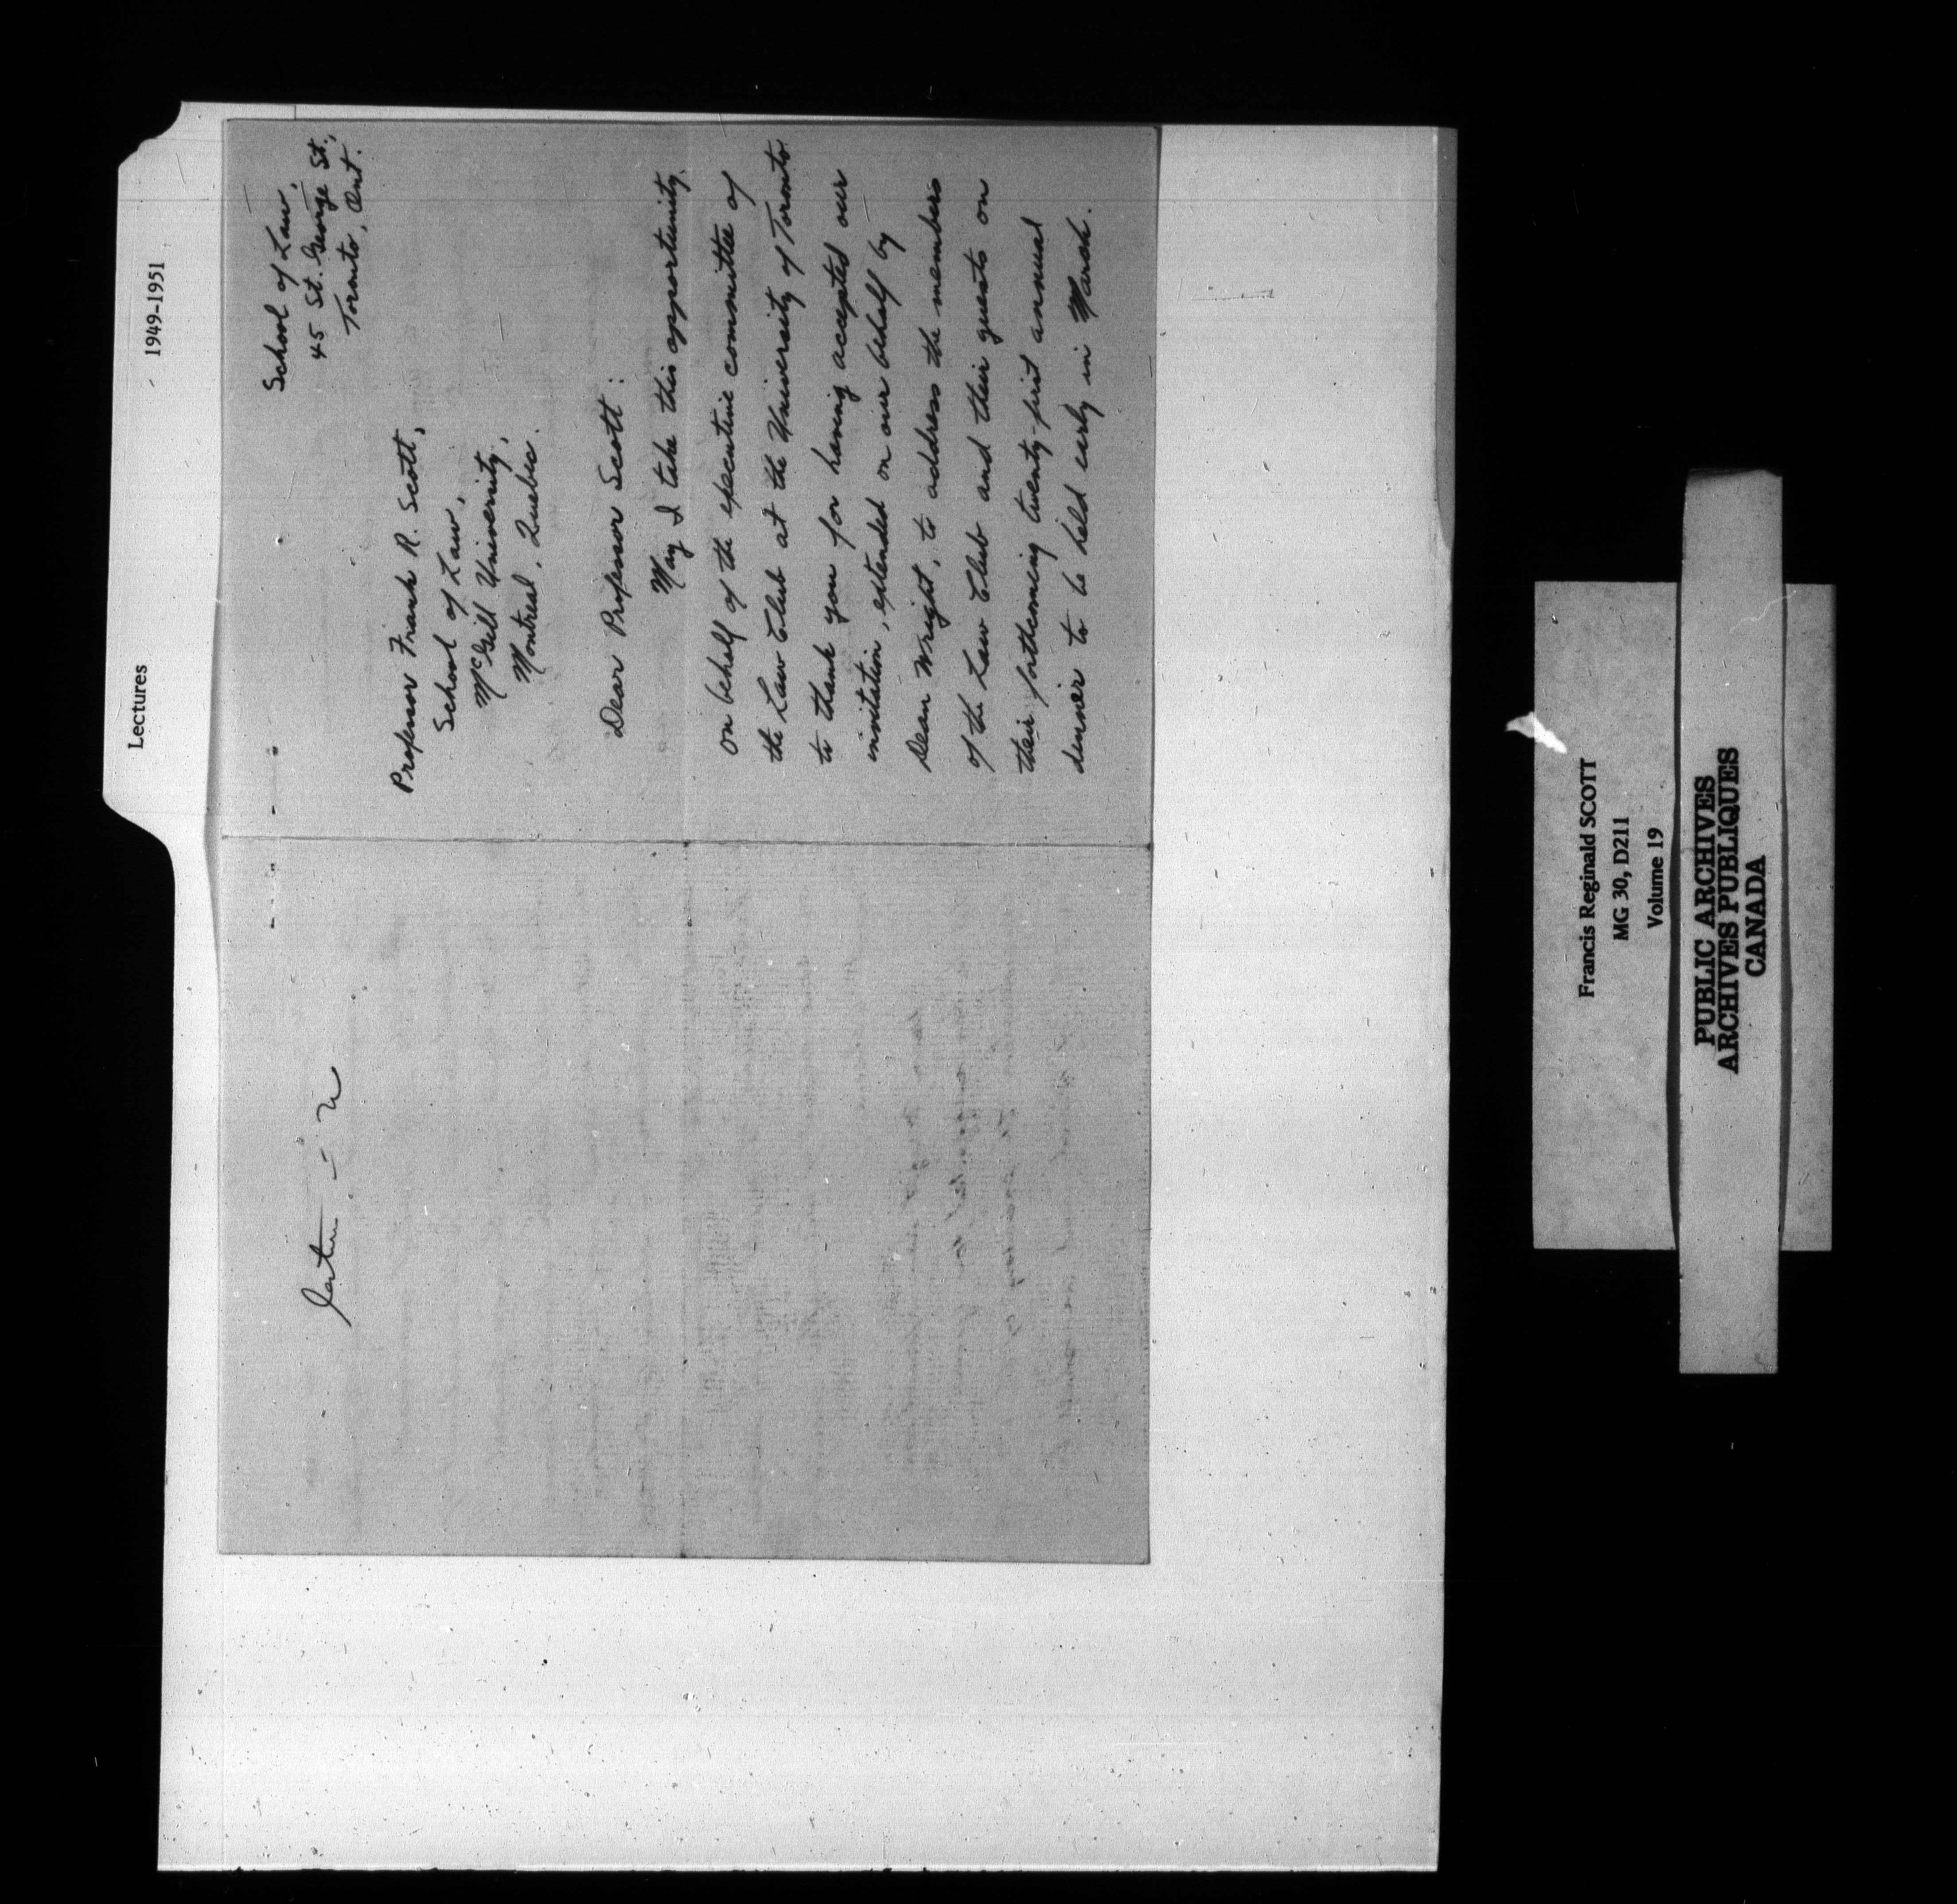 Lectures 1949-1951
School of Law,
45 St. George St.,
Toronto, Ont.
Professor Frank R. Scott,
School of Law,
McGill University,
Montreal, Quebec.
Dear Professor Scott:
May I take this opportunity,
on behalf of the executive committee of
the Law Club at the University of Toronto
to thank you for having accepted our
invitation, extended on our behalf by
Dean Wright, to address the members
of the Law Club and their guests on
their forthcoming twenty-first annual
dinner to be held early in March.
Francis Reginald SCOTT
MG 30, D211
Volume 19
PUBLIC ARCHIVES
ARCHIVES PUBLIQUES
CANADA